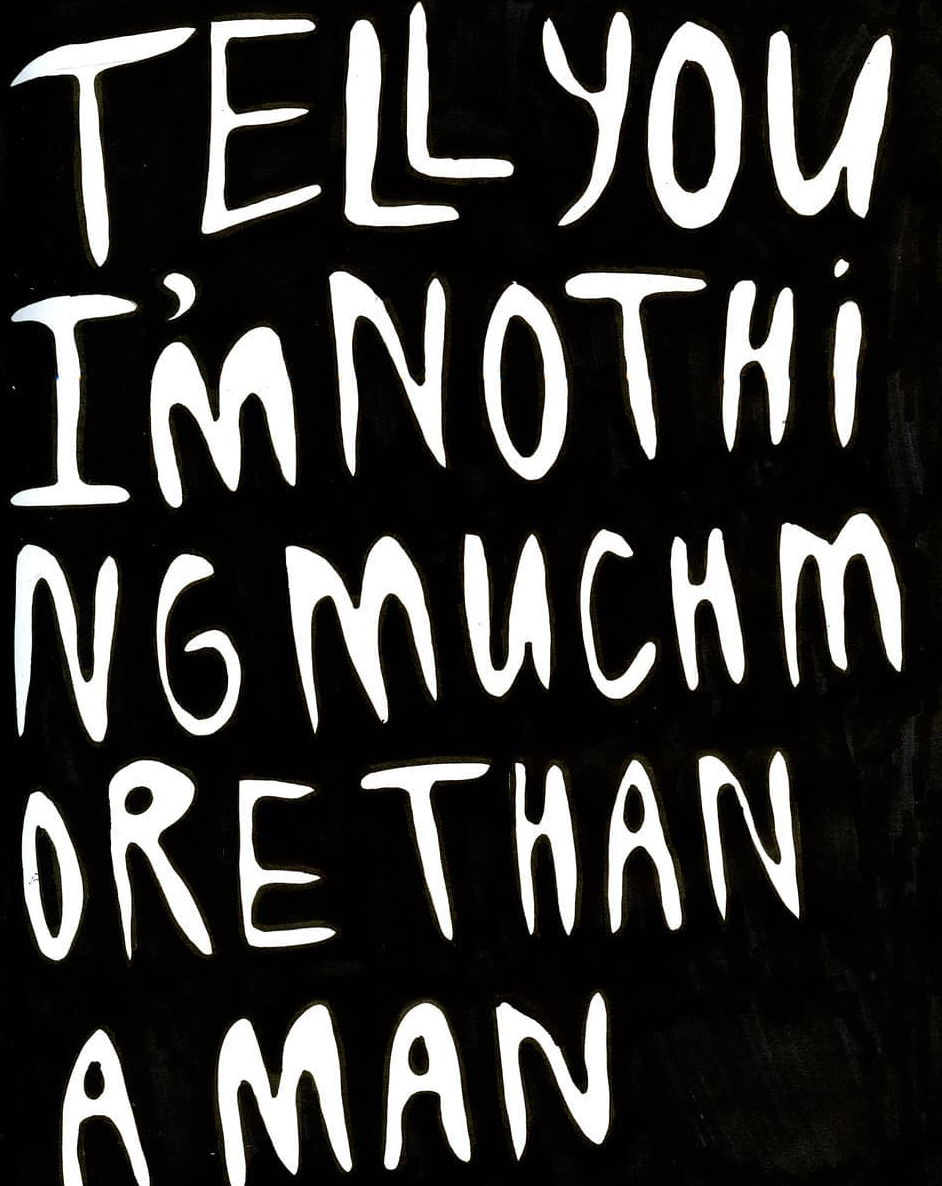 TELL YOU
I'M NOTHi
NG MUCH M
ORE THAN
A MAN